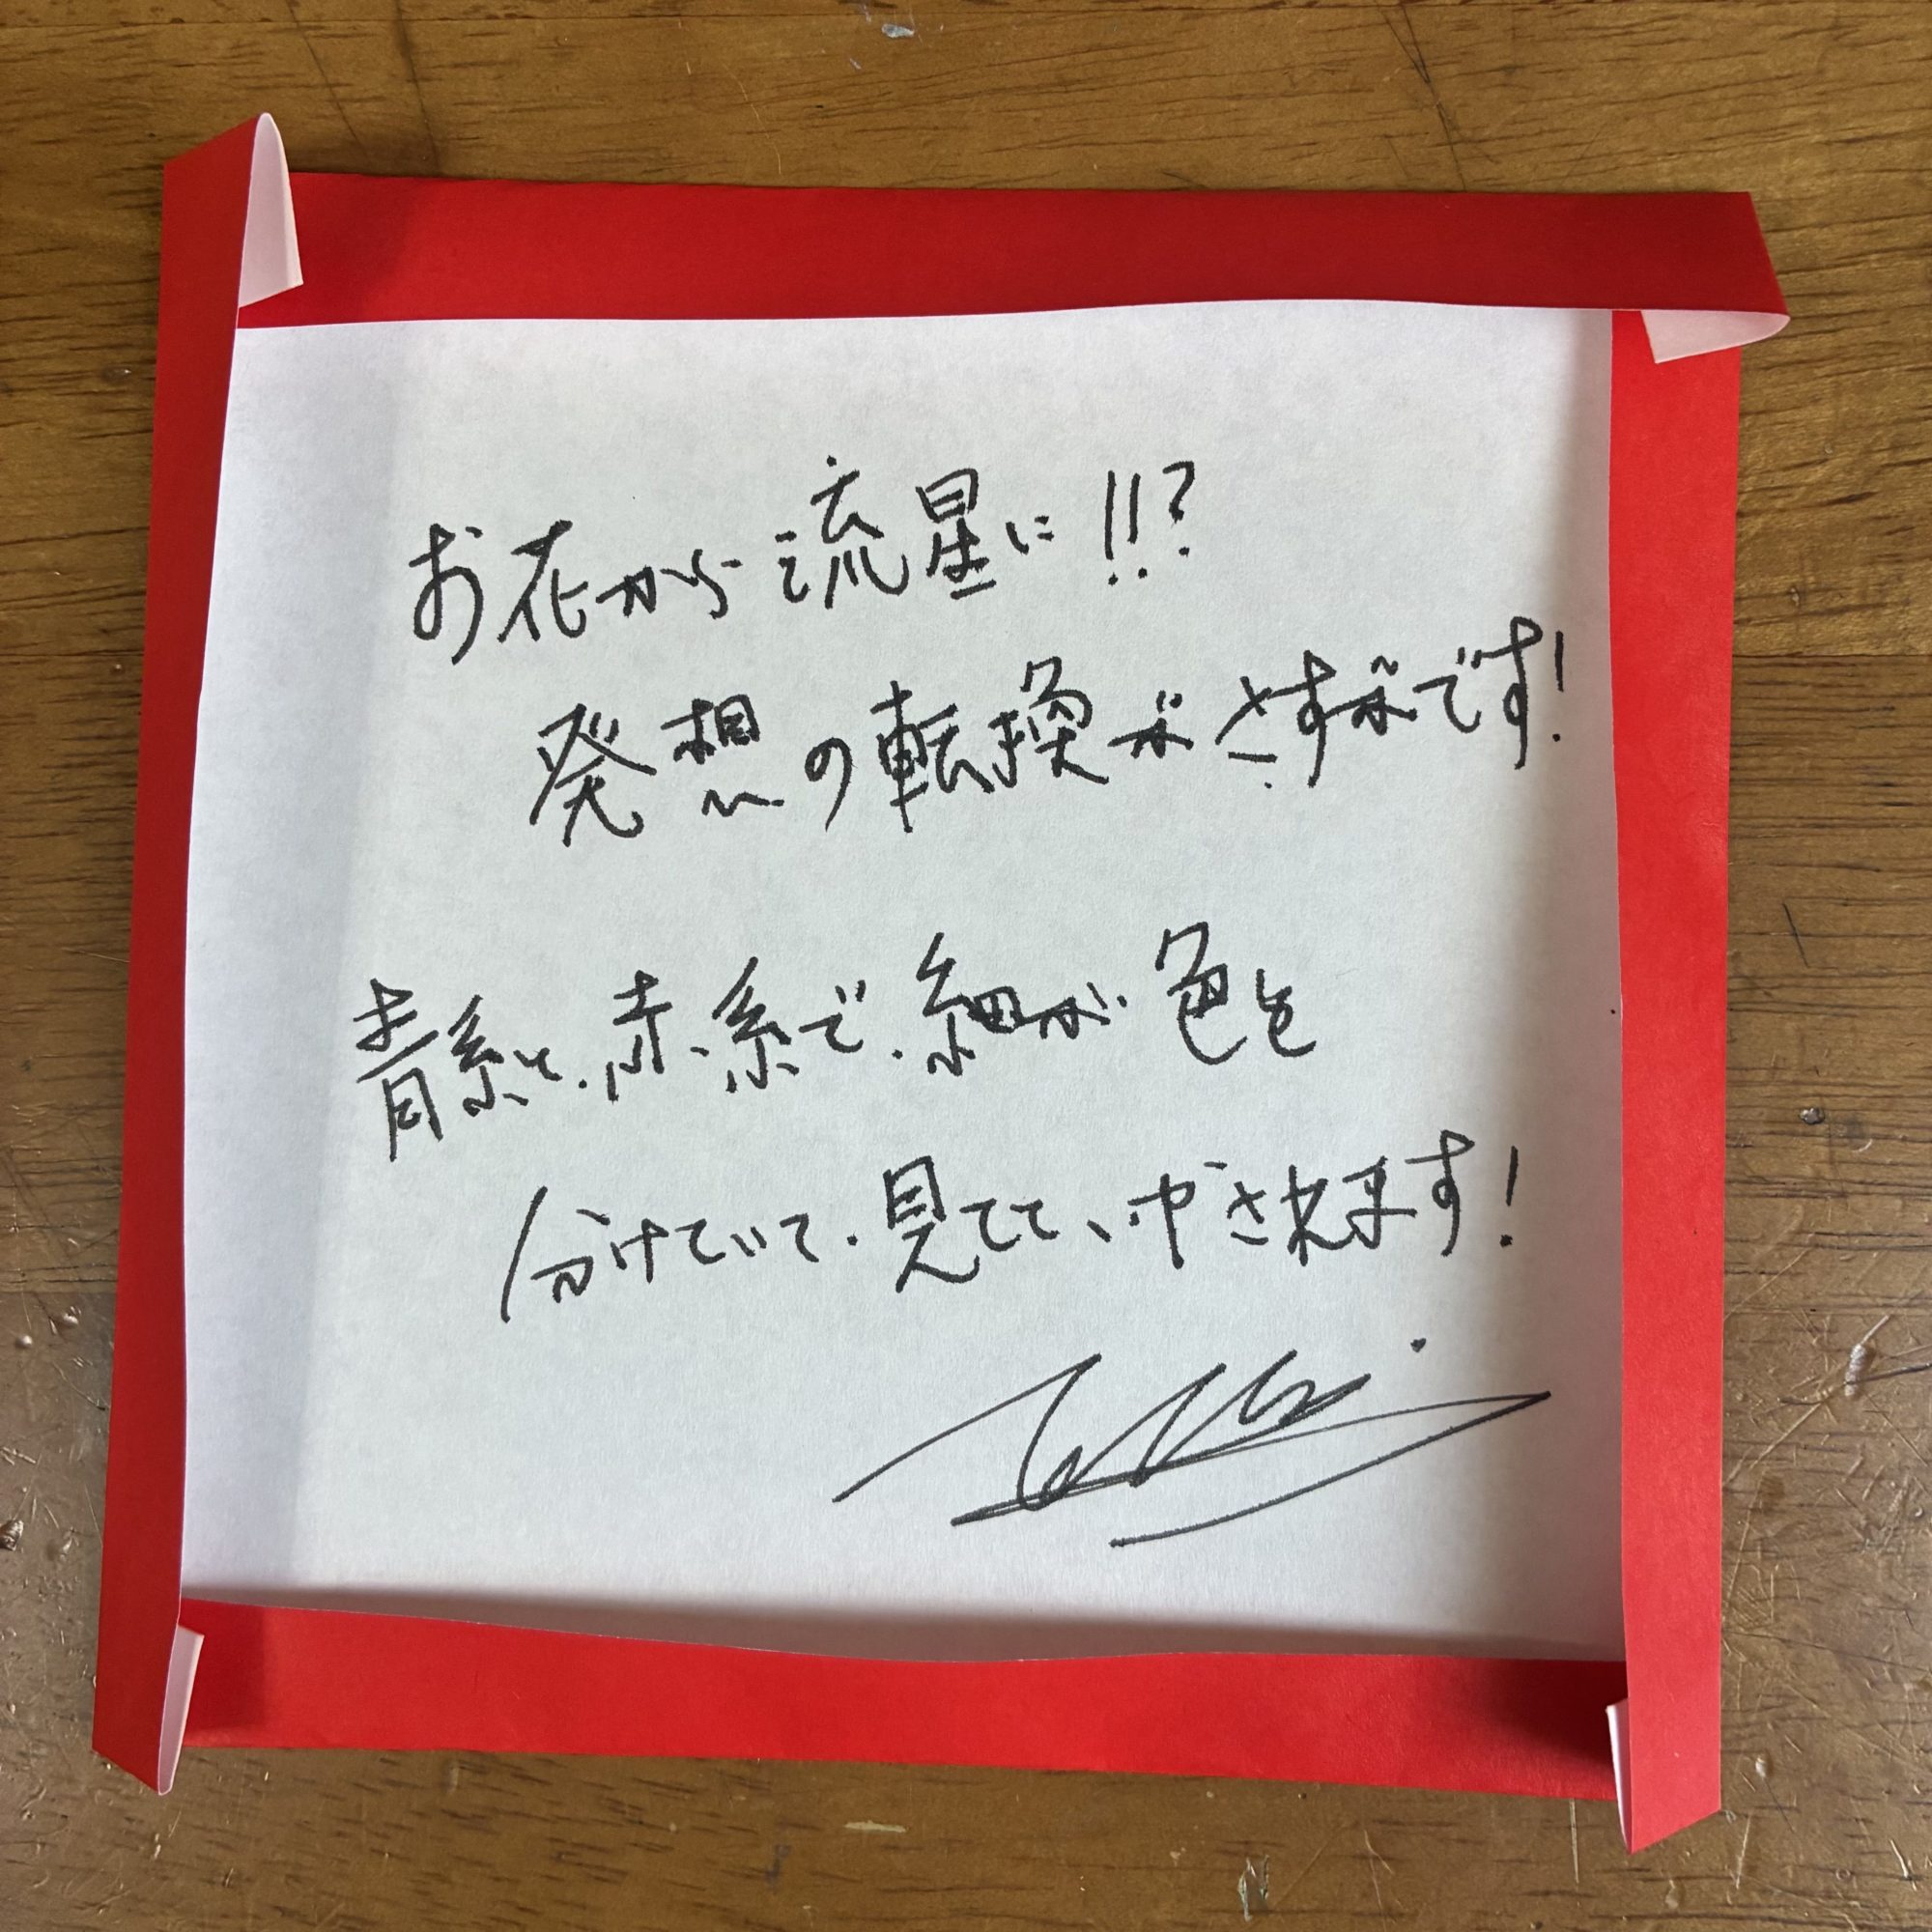 お花から流星に!!?
発想の転換がさすがです!
青系と赤系で細かく色を
分けていて、見てて、いやされます!